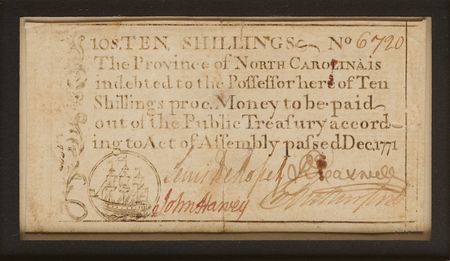 10S. TEN SHILLINGS No 6720
The Province of NORTH CAROLINA is
indebted to the Poſſeſſor hereof Ten
Shillings proc. Money to be paid
out of the Public Treaſury accord-
ing to Act of Aſſembly paſſed Dec. 1771
Lewis De Rosset
John Harvey